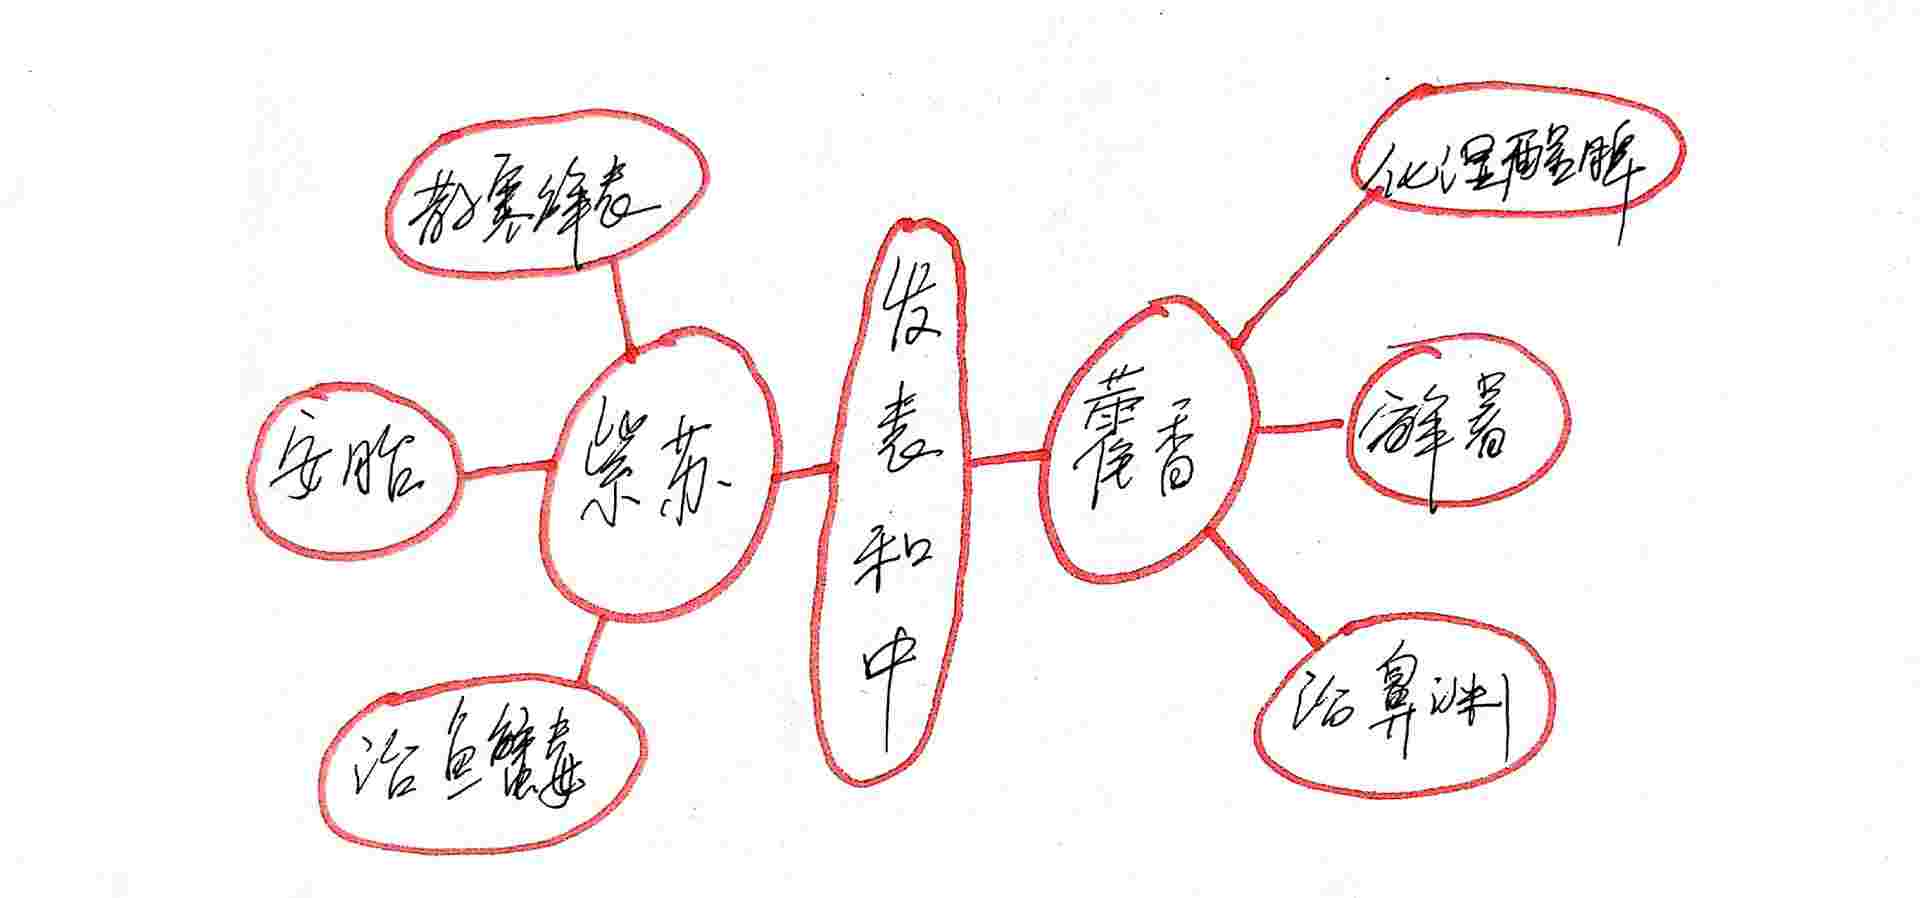 散寒解表
安胎
紫苏
治鱼蟹毒
发表和中
藿香
化湿醒脾
解暑
治鼻渊